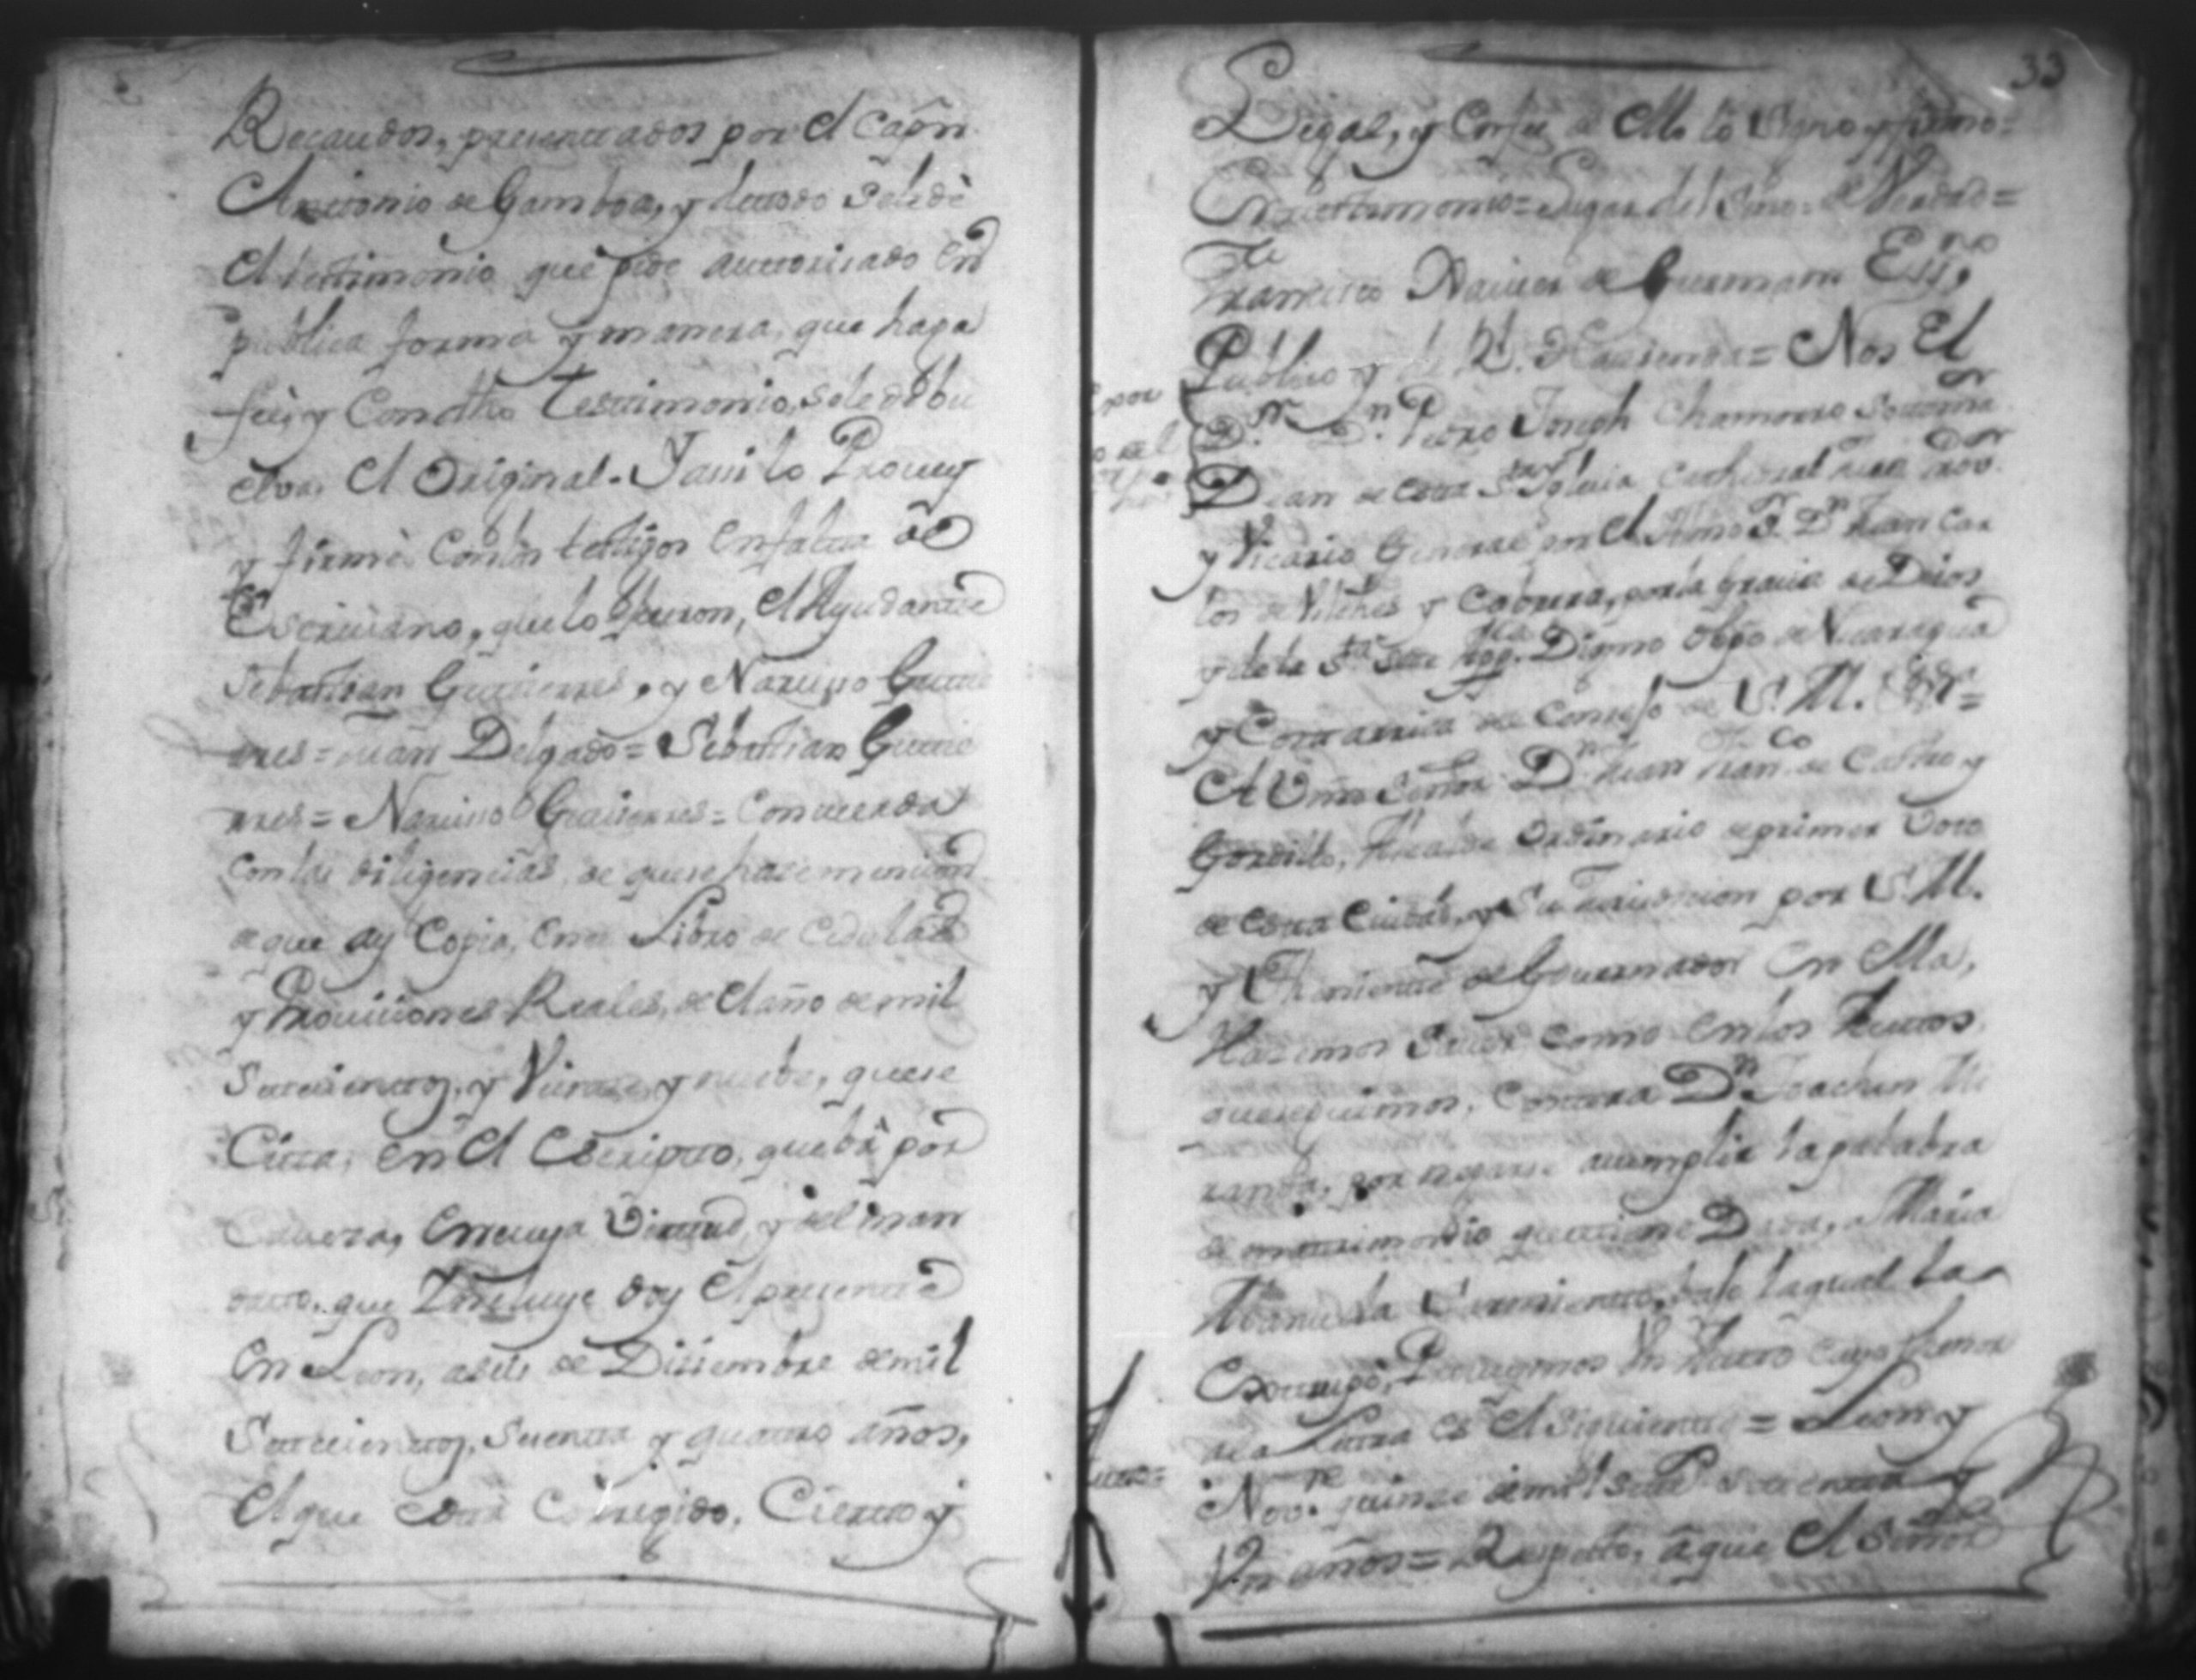 Recaudos, presentados por el Capn.
Antonio de Gamboa, y letodo se le dè
el testimonio que pide authorisado en
publica forma y manera, que haga
feè, y Con dho testimonio, se le debu
elva, el Original. Y assi lo Proveý
y firmè Con los testigos en falta de
Escriuano, que lo fueron, el Ayudante
Sebastian Gutierres, y Narcisso Gutie
rres = Juan Delgado = Sebastian Gutie
rres = Narcisso Gutierres = Concuerda
Con las diligencias, de que se hace mencion
de que ay Copia, en el Libro de Cedulas
y Provissiones Reales, de el año de mil
Settecientos, y Veinte y nuebe, que se
Citta, en el Escripto, que bà por
Cavesa, en cuya Virtud, y del man
datto, que Incluye doy el presente
en Leon, a seis de Disiembre de mil
Settecientos, Setenta y quattro años,
el que està Corregido, Cierto y
33
Legal, y en feè de ello lo Signo y firmo =
En testimonio = Lugar del Signo = de Verdad =
Francisco Xavier de Guzman Essno
Publico y de Rl. Hacienda = Nos El
Dr. Dn. Pedro Joseph Chamorro Sotomr.
Dean de esta Sta Iglesia Cathedral Juez Provor
y Vicario General por el Illmo Sr. Dn Juan Car
los de Vilches y Cabrera, por la gracia de Dios
y de la Sta Sede Appca. Digno Obpo de Nicaragua
y Costa rrica del Consejo de S. M. =
Al Señor Dn. Juan Franco de Castro y
Gordillo, Alcalde Ordinario de primer Voto
de esta Ciudad, y Su Jurisdicion por S. M.
y Theniente de Governador en ella,
Hazemos Saver como en los Auttos
que seguimos, Contra Dn. Joachin Mi
randa, por negarse a cumplir la palabra
de matrimonio que tiene Dada, a Maria
Manuela Sarmiento, bajo la qual la
Estrupò, Proveymos Un Auto cuyo thenor
a la Letra es el Siguiente = Leon y
Nove. quinze de mil settos. Settenta y
Un años = Respecto, a que el Señor